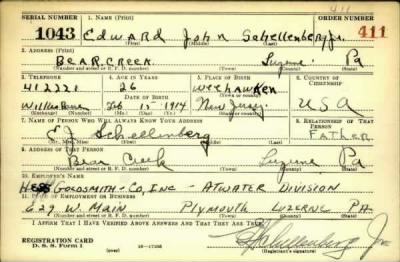 411
SERIAL NUMBER 1. NAME (Print) ORDER NUMBER
1043 Edward John Schellenberg, Jr. 411
(First) (Middle) (Last)
2. ADDRESS (Print)
BEAR CREEK Luzerne Pa
(Number and street or R. F. D. number) (Town) (County) (State)
3. TELEPHONE 4. AGE IN YEARS 5. PLACE OF BIRTH 6. COUNTRY OF CITIZENSHIP
412221 26 Weehawken
DATE OF BIRTH (Town or county)
Wilkes Barre Feb 15 1914 New Jersey USA
(Exchange) (Number) (Mo.) (Day) (Yr.) (State or country)
7. NAME OF PERSON WHO WILL ALWAYS KNOW YOUR ADDRESS 8. RELATIONSHIP OF THAT PERSON
E J Schellenberg FATHER
9. ADDRESS OF THAT PERSON
Bear Creek Luzerne Pa
(Number and street or R. F. D. number) (Town) (County) (State)
10. EMPLOYER'S NAME
HESS GOLDSMITH - CO, INC - ATWATER DIVISION
11. PLACE OF EMPLOYMENT OR BUSINESS
629 W. MAIN PLYMOUTH LUZERNE PA
(Number and street or R. F. D. number) (Town) (County) (State)
I AFFIRM THAT I HAVE VERIFIED ABOVE ANSWERS AND THAT THEY ARE TRUE.
REGISTRATION CARD
D. S. S. Form 1 Schellenberg Jr